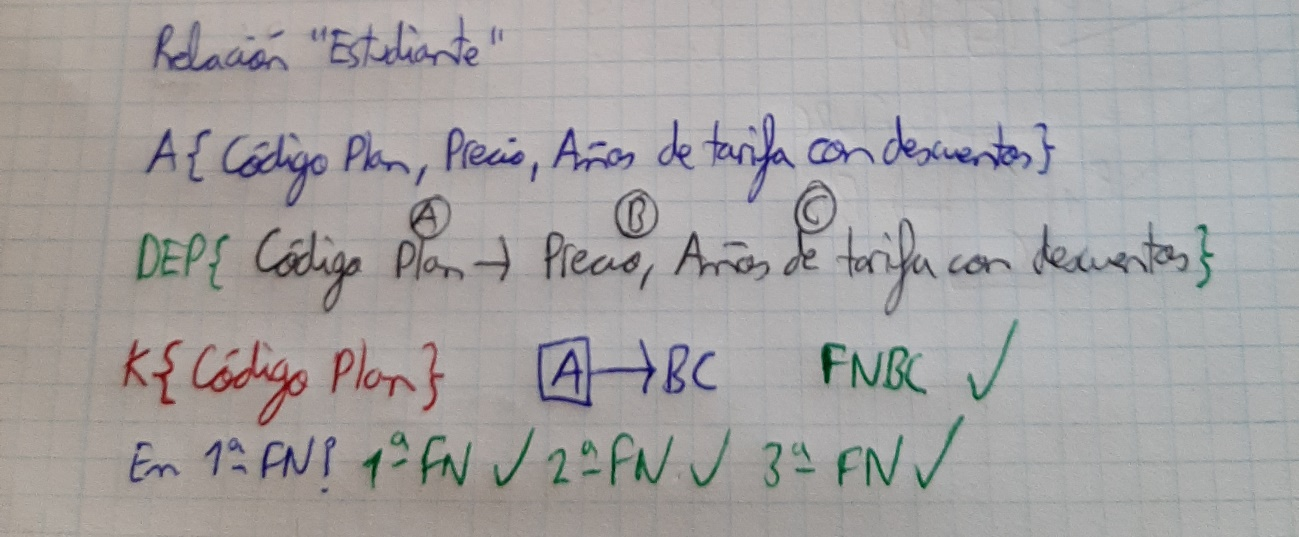 Relación "Estudiante"
A{ Código Plan, Precio, Años de tarifa con descuentos}
A B C
DEP{ Código Plan → Precio, Años de tarifa con descuentos}
K{ Código Plan} A → BC FNBC ✓
En 1ª FN! 1ª FN ✓ 2ª FN ✓ 3ª FN ✓